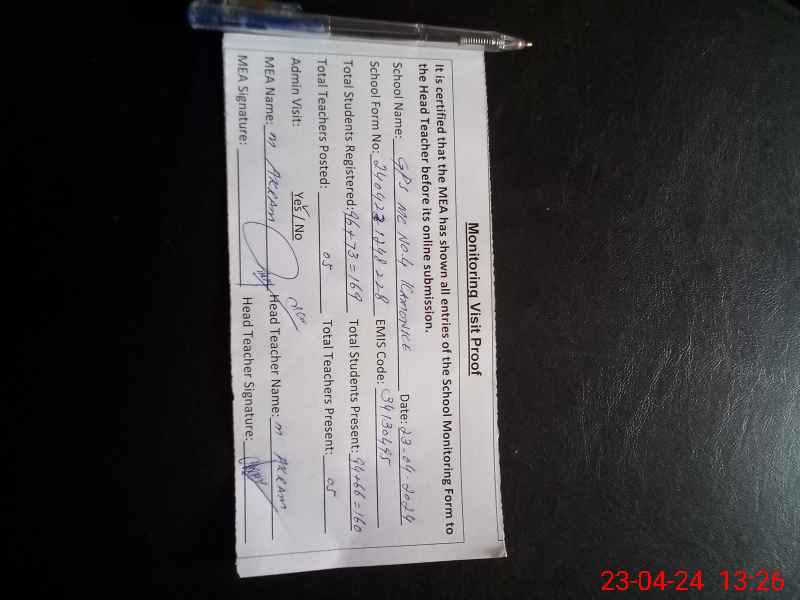 Monitoring Visit Proof
It is certified that the MEA has shown all entries of the School Monitoring Form to
the Head Teacher before its online submission.
School Name: GPS MC NO.4 KAMONKE Date: 23-04-2024
School Form No: 240423 1248 228 EMIS Code: 34130495
Total Students Registered: 96+73=169 Total Students Present: 94+66=160
Total Teachers Posted: 05 Total Teachers Present: 05
Admin Visit: Yes / No
MEA Name: M AKRAM Head Teacher Name: M AKRAM
MEA Signature: Head Teacher Signature:
23-04-24 13:26